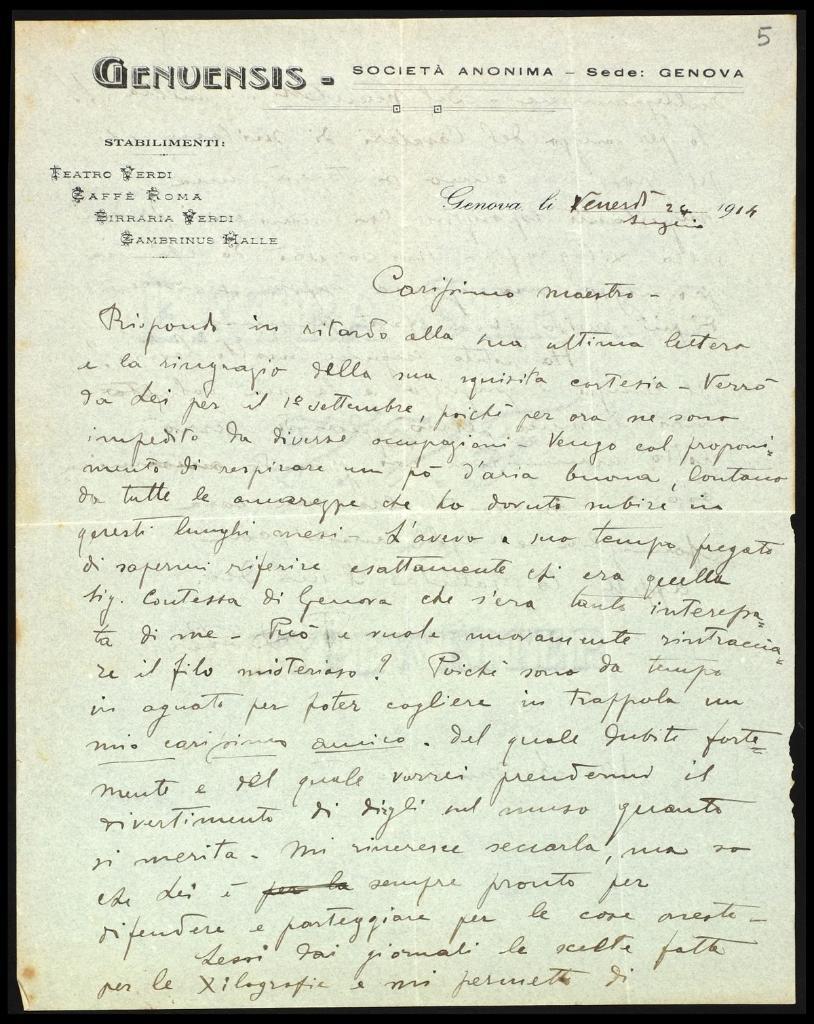 5
GENUENSIS - SOCIETÀ ANONIMA - Sede: GENOVA
STABILIMENTI:
TEATRO VERDI
CAFFÈ ROMA
BIRRARIA VERDI
GAMBRINUS HALLE
Genova, li Venerdì 24 1914
Carissimo maestro -
Rispondo in ritardo alla sua ultima lettera
e la ringrazio della sua squisita cortesia - Verrò
da Lei per il 1º settembre, poichè per ora ne sono
impedito da diverse occupazioni - Vengo col proponi=
mento di respirare un pò d'aria buona, lontano
da tutte le amarezze che ho dovuto subire in
questi lunghi mesi - L'avevo a suo tempo pregato
di sapermi riferire esattamente chi era quella
Sig. Contessa di Genova che s'era tanto interessa=
ta di me - Può e vuole nuovamente rintraccia=
re il filo misterioso? Poichè sono da tempo
in aguato per poter cogliere in trappola un
mio carissimo amico. Del quale dubito forte=
mente e del quale vorrei prendermi il
divertimento di dirgli sul muso quanto
si merita - Mi rincresce seccarla, ma so
che Lei è per la sempre pronto per
difendere e parteggiare per le cose oneste -
Lessi dai giornali le scelte fatte
per le Xilografie e mi permetto di